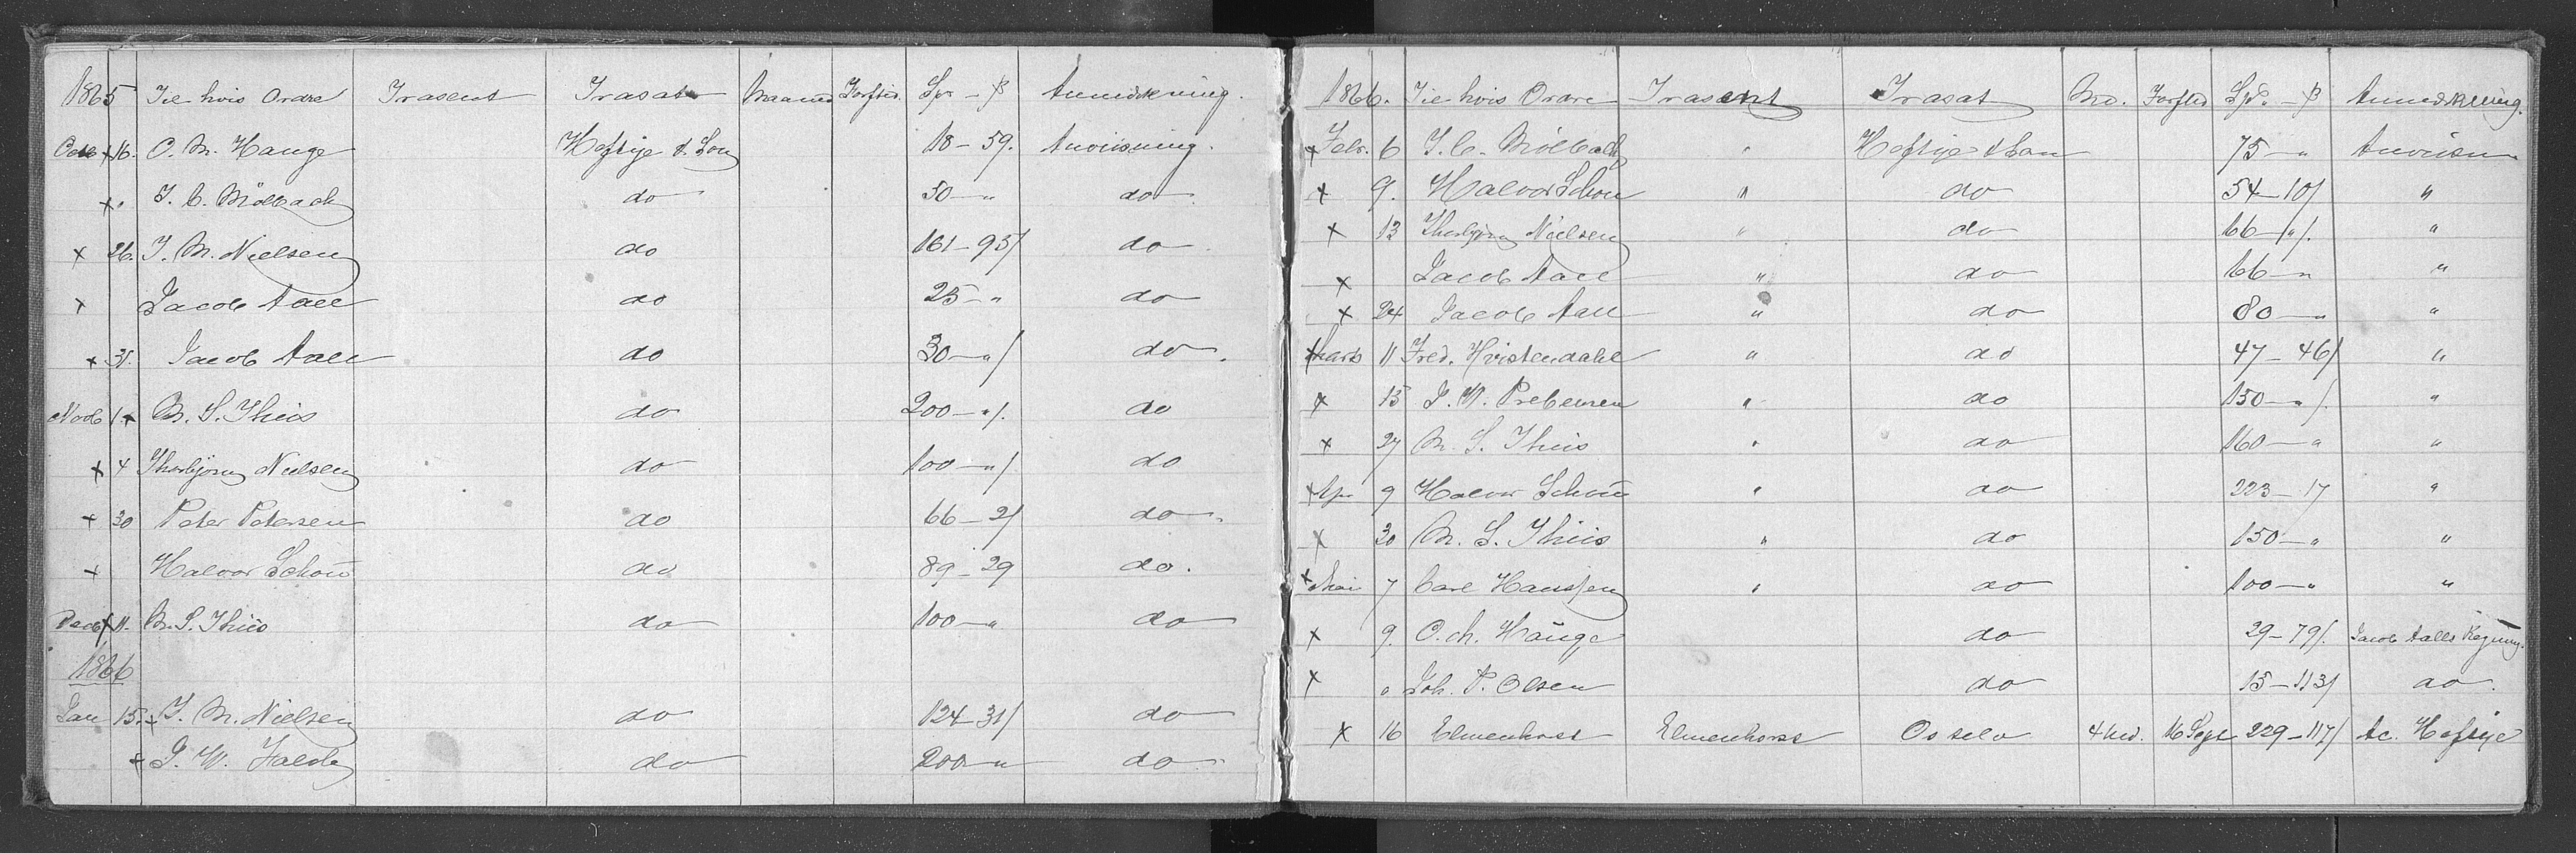 1865 Til hvis Ordre Trasent Trasat Maaned Forfter. Sp - β Anmerkning.
Octb x 16. O. M. Hauge Heftye & Søn 18 - 59. Anviisning.
x " J. C. Mölbach do 50 - " do
x 26. J. M. Nielsen do 161 - 95/ do
x Jacob Aall do 25 - " do
x 31. Jacob Aall do 30 - " / do
Novb 1. x M. S. Thiis do 200 - " /. do
x 4 Thorbjørn Nielsen do 100 - " / do
x 30 Peter Petersen do 66 - 2/ do
x Halvor Schou do 89 - 29 do.
Decb x 11. M. S. Thiis do 100 - " do
1866
Jan 15. x J. M. Nielsen do 124 - 31/ do
x P. W. do 200 - " do
1866. Til hvis Ordre Trasent Trasat Md. Forfter Spd. - β Anmerkning.
x Febr. 6 J. C. Mölbach " Heftye & Søn 75 - " Anviisn
x 9. Halvor Schou " do 54 - 10/ "
x 13 Thorbjørn Nielsen " do 66 - " /. "
x Jacob Aall " do 66 - " "
x 24 Jacob Aall " do 80 - " "
x Marts 11 Fred. Hvistendahl " do 47 - 46/ "
x 15 P. W. Prebensen " do 150 - " /. "
x 27 M. S. Thiis " do 160 - " "
x Apr 9 Halvor Schou " do 223 - 17 "
x 30 M. S. Thiis " do 150 - " "
x Mai 7 Carl Hanssen " do 100 - " "
x 9. O. M. Hauge do 29 - 79/. Jacob Aalls Regning.
x " Joh. P. Olsen do 15 - 113/ do.
x 16 Elmenhorst Elmenhorst Os selv 4 Md. 16 Sept 229 - 117/ Ac. Heftye